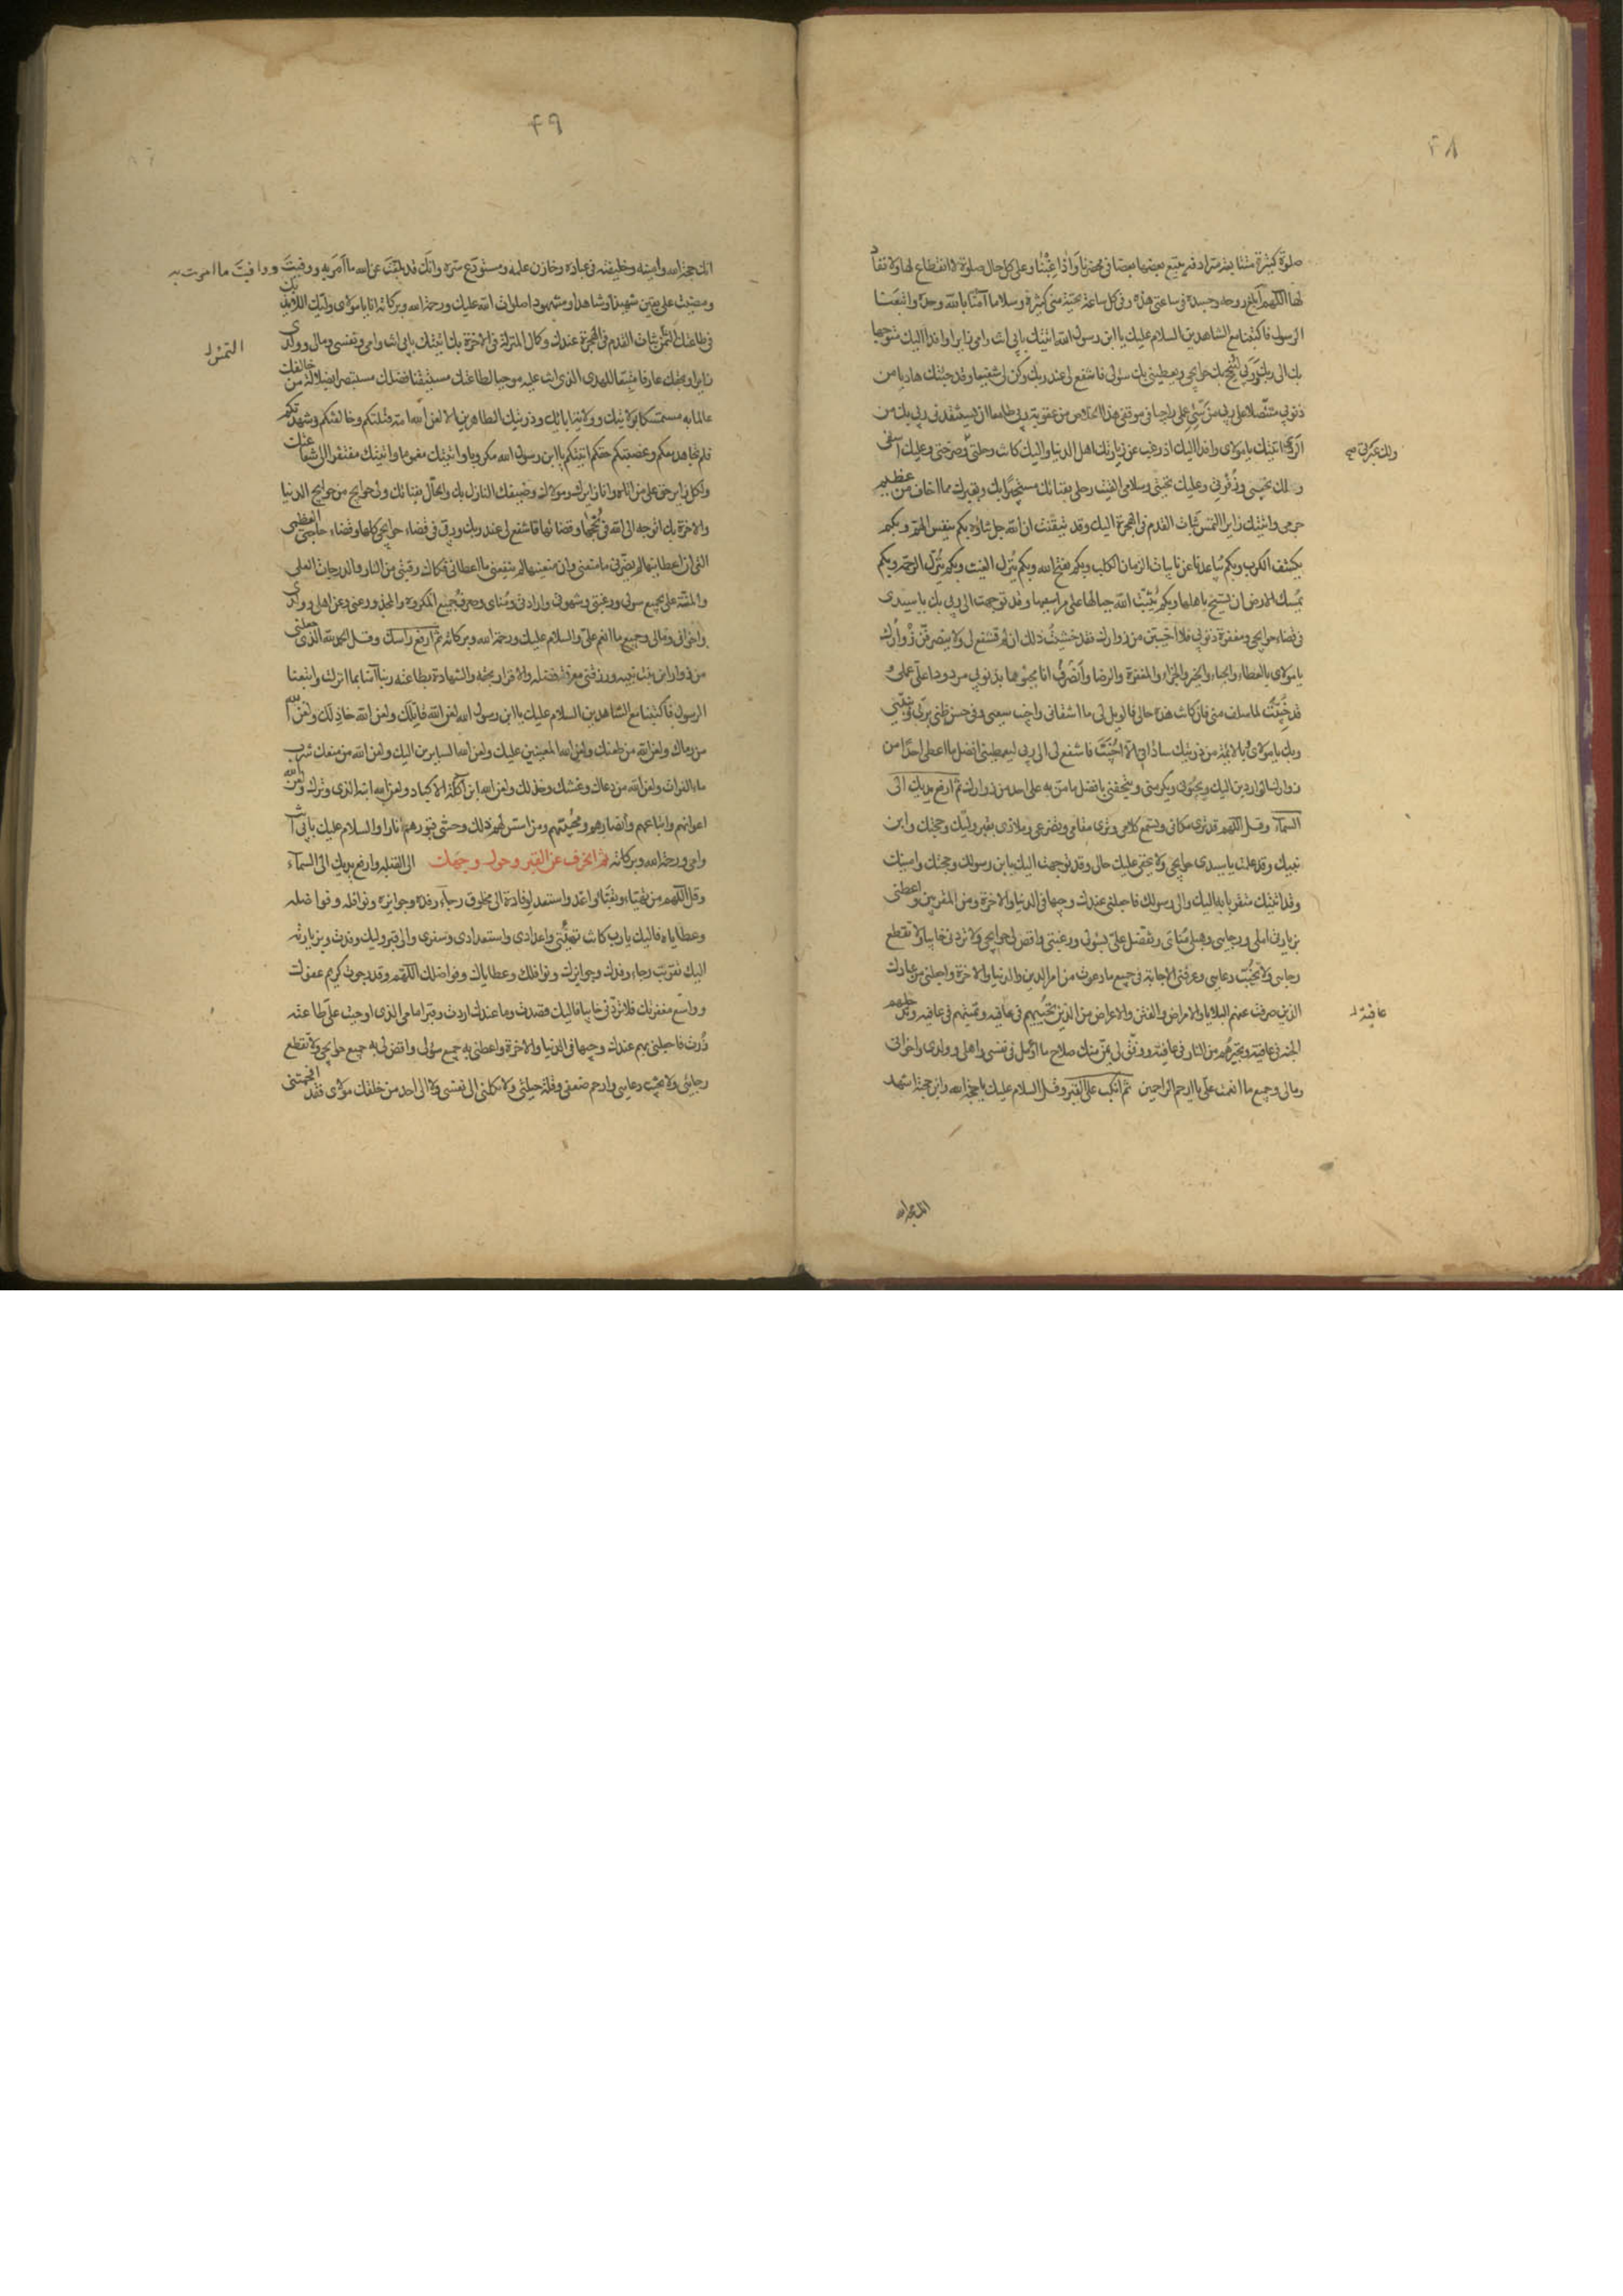 ۴۸
صلوة كثيرة متتابعة مترادفة يتبع بعضها بعضا في محضرنا واذا غبنا وعلى كل حال صلوة لا انقطاع لها ولا نفاد
لها اللهم ابلغ روحه وجسده في ساعتي هذه وفي كل ساعة تحية مني كثيرة وسلاما آمنا بالله وحده واتبعنا
الرسول فاكتبنا مع الشاهدين السلام عليك يا ابن رسول الله اتيتك بابي انت وامي زايرا وافدا اليك متوجها
بك الى ربك وربي لينجح بك حوايجي ويعطيني بك سؤلي فاشفع لي عنده وكن لي شفيعا وقد جئتك هاربا من
ذنوبي متنصلا الى ربي من سيئ عملي راجيا في موقفي هذا الخلاص من عقوبة ربي طامعا ان يستنقذني ربي بك من
الردى اتيتك يا مولاي وافدا اليك اذ رغب عن زيارتك اهل الدنيا واليك كانت رحلتي ولك عبرتي وصرختي وعليك اسفي
ولك نحيبي وزفرتي وعليك تحيتي وسلامي القيت رحلي بفنائك مستجيرا بك وبقبرك مما اخاف من عظيم
جرمي واتيتك زايرا التمس ثبات القدم في الهجرة اليك وقد تيقنت ان الله جل ثناؤه بكم ينفس الهم وبكم
يكشف الكرب وبكم يباعدنا عن نايبات الزمان الكلب وبكم فتح الله وبكم ينزل الغيث وبكم ينزل الرحمة وبكم
يمسك الارض ان تسيخ باهلها وبكم يثبت الله جبالها على مراسيها وقد توجهت الى ربي بك يا سيدي
في قضاء حوايجي ومغفرة ذنوبي فلا اخيبن من زوارك فقد خشيت ذلك ان لم تشفع لي ولا ينصرفن زوارك
يا مولاي بالعطاء والحباء والخير والجزاء والمغفرة والرضا وانصرف انا مجبوها بذنوبي مردودا علي عملي
قد خيبت لما سلف مني فان كانت هذه حالي فالويل لي ما اشقاني واخيب سعيي وفي حسن ظني بربي وبنبيي
وبك يا مولاي وبالائمة من ذريتك ساداتي الا اخيب فاشفع لي الى ربي ليعطيني افضل ما اعطى احدا من
زوارك الواردين اليك ويحبوني ويكرمني ويتحفني بافضل ما من به على احد من زوارك ثم ارفع يديك الى
السماء وقل اللهم قد ترى مكاني وتسمع كلامي وترى مقامي وتضرعي وملاذي بقبر وليك وحجتك وابن
نبيك وقد علمت يا سيدي حوايجي ولا يخفى عليك حالي وقد توجهت اليك بابن رسولك وحجتك وامينك
وقد اتيتك متقربا به اليك والى رسولك فاجعلني عندك وجيها في الدنيا والاخرة ومن المقربين واعطني
بزيارتي املي ورجايي وهب لي مناي وتفضل علي بسؤلي ورغبتي واقض لي حوايجي ولا تردني خايبا ولا تقطع
رجايي ولا تخيب دعايي وعرفني الاجابة في جميع ما دعوت من امر الدين والدنيا والاخرة واجعلني من عبادك
الذين صرفت عنهم البلايا والامراض والفتن والاعراض من الذين تحييهم في عافية وتميتهم في عافية وتدخلهم
عافية
الجنة في عافية وتجيرهم من النار في عافية ووفق لي بمن منك صلاح ما اؤمل في نفسي واهلي وولدي واخواني
ومالي وجميع ما انعمت علي يا ارحم الراحمين ثم انكب على القبر وقل السلام عليك يا حجة الله وابن حجته اشهد
۴۹
انك حجة الله وامينه وخليفته في عباده وخازن علمه ومستودع سره وانك قد بلغت عن الله ما امر به ووفيت ووافيت ما امرت به
ومضيت على يقين شهيدا وشاهدا ومشهودا صلوات الله عليك ورحمة الله وبركاته انا يا مولاي وليك اللائذ بك
في طاعتك التمس ثبات القدم في الهجرة عندك وكمال المنزلة في الاخرة بك اتيتك بابي انت وامي ونفسي ومالي وولدي
زايرا وبحقك عارفا متبعا للهدى الذي انت عليه موجبا لطاعتك مستيقنا فضلك مستبصرا بضلالة من خالفك
عالما به مستمسكا بولايتك وولاية ابائك وذريتك الطاهرين الا لعن الله امة قتلتكم وخالفتكم وشهدتكم
فلم تجاهد معكم وغصبتكم حقكم اتيتكم يا ابن رسول الله مكروبا واتيتك مغموما واتيتك مفتقرا الى شفاعتك
ولكل زاير حق على من اتاه وانا زايرك ومولاك وضيفك النازل بك والحال بفنائك ولي حوايج من حوايج الدنيا
والاخرة بك اتوجه الى الله في نجحها وقضائها فاشفع لي عند ربك وربي في قضاء حوايجي كلها وقضاء حاجتي العظمى
التي ان اعطانيها لم يضرني ما منعني وان منعنيها لم ينفعني ما اعطاني فكاك رقبتي من النار والدرجات العلى
والمنة علي بجميع سؤلي ورغبتي وشهوتي وارادتي ومناي وصرف جميع المكروه والمحذور عني وعن اهلي وولدي
واخواني ومالي وجميع ما انعم علي والسلام عليك ورحمة الله وبركاته ثم ارفع راسك وقل الحمد لله الذي جعلني
من زوار ابن بنت نبيه ورزقني معرفة فضله والاقرار بحقه والشهادة بطاعته ربنا آمنا بما انزلت واتبعنا
الرسول فاكتبنا مع الشاهدين السلام عليك يا ابن رسول الله لعن الله قاتلك ولعن الله خاذلك ولعن الله
من رماك ولعن الله من طعنك ولعن الله المعينين عليك ولعن الله السايرين اليك ولعن الله من منعك شرب
ماء الفرات ولعن الله من دعاك وغشك وخذلك ولعن الله ابن آكلة الاكباد ولعن الله ابنه الذي وترك ولعن الله
اعوانهم واتباعهم وانصارهم ومحبيهم ومن اسس لهم ذلك وحشى قبورهم نارا والسلام عليك بابي انت
وامي ورحمة الله وبركاته ثم انحرف عن القبر وحول وجهك الى القبلة وارفع يديك الى السماء
وقل اللهم من تهيأ وتعبأ واعد واستعد لوفادة الى مخلوق رجاء رفده وجوايزه ونوافله وفواضله
وعطاياه فاليك يا رب كانت تهيئتي واعدادي واستعدادي وسفري والى قبر وليك وفدت وبزيارته
اليك تقربت رجاء رفدك وجوايزك ونوافلك وعطاياك وفواضلك اللهم وقد رجوت كريم عفوك
وواسع مغفرتك فلا تردني خايبا فاليك قصدت وما عندك اردت وقبر امامي الذي اوجبت علي طاعته
زرت فاجعلني بهم عندك وجيها في الدنيا والاخرة واعطني به جميع سؤلي واقض لي به جميع حوايجي ولا تقطع
رجايي ولا تخيب دعايي وارحم ضعفي وقلة حيلتي ولا تكلني الى نفسي ولا الى احد من خلقك مولاي فقد افحمتني